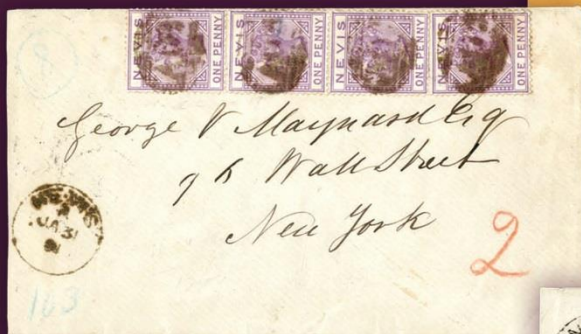 NEVIS ONE PENNY NEVIS ONE PENNY NEVIS ONE PENNY NEVIS ONE PENNY
George V Maynard Esq
Wall Street
New York
NEVIS
A
JA 31
2
163